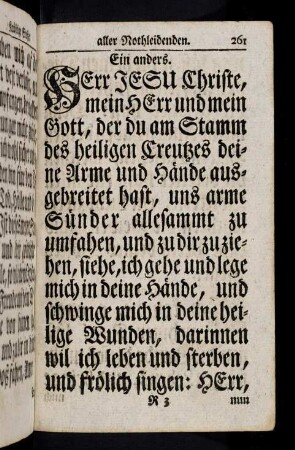 aller Nothleidenden. 261
Ein anders.
HErr JESU Christe,
mein HErr und mein
Gott, der du am Stamm
des heiligen Creutzes dei-
ne Arme und Hände aus-
gebreitet hast, uns arme
Sünder allesammt zu
umfahen, und zu dir zu zie-
hen, siehe, ich gehe und lege
mich in deine Hände, und
schwinge mich in deine hei-
lige Wunden, darinnen
wil ich leben und sterben,
und frölich singen: HErr,
R 3 nun